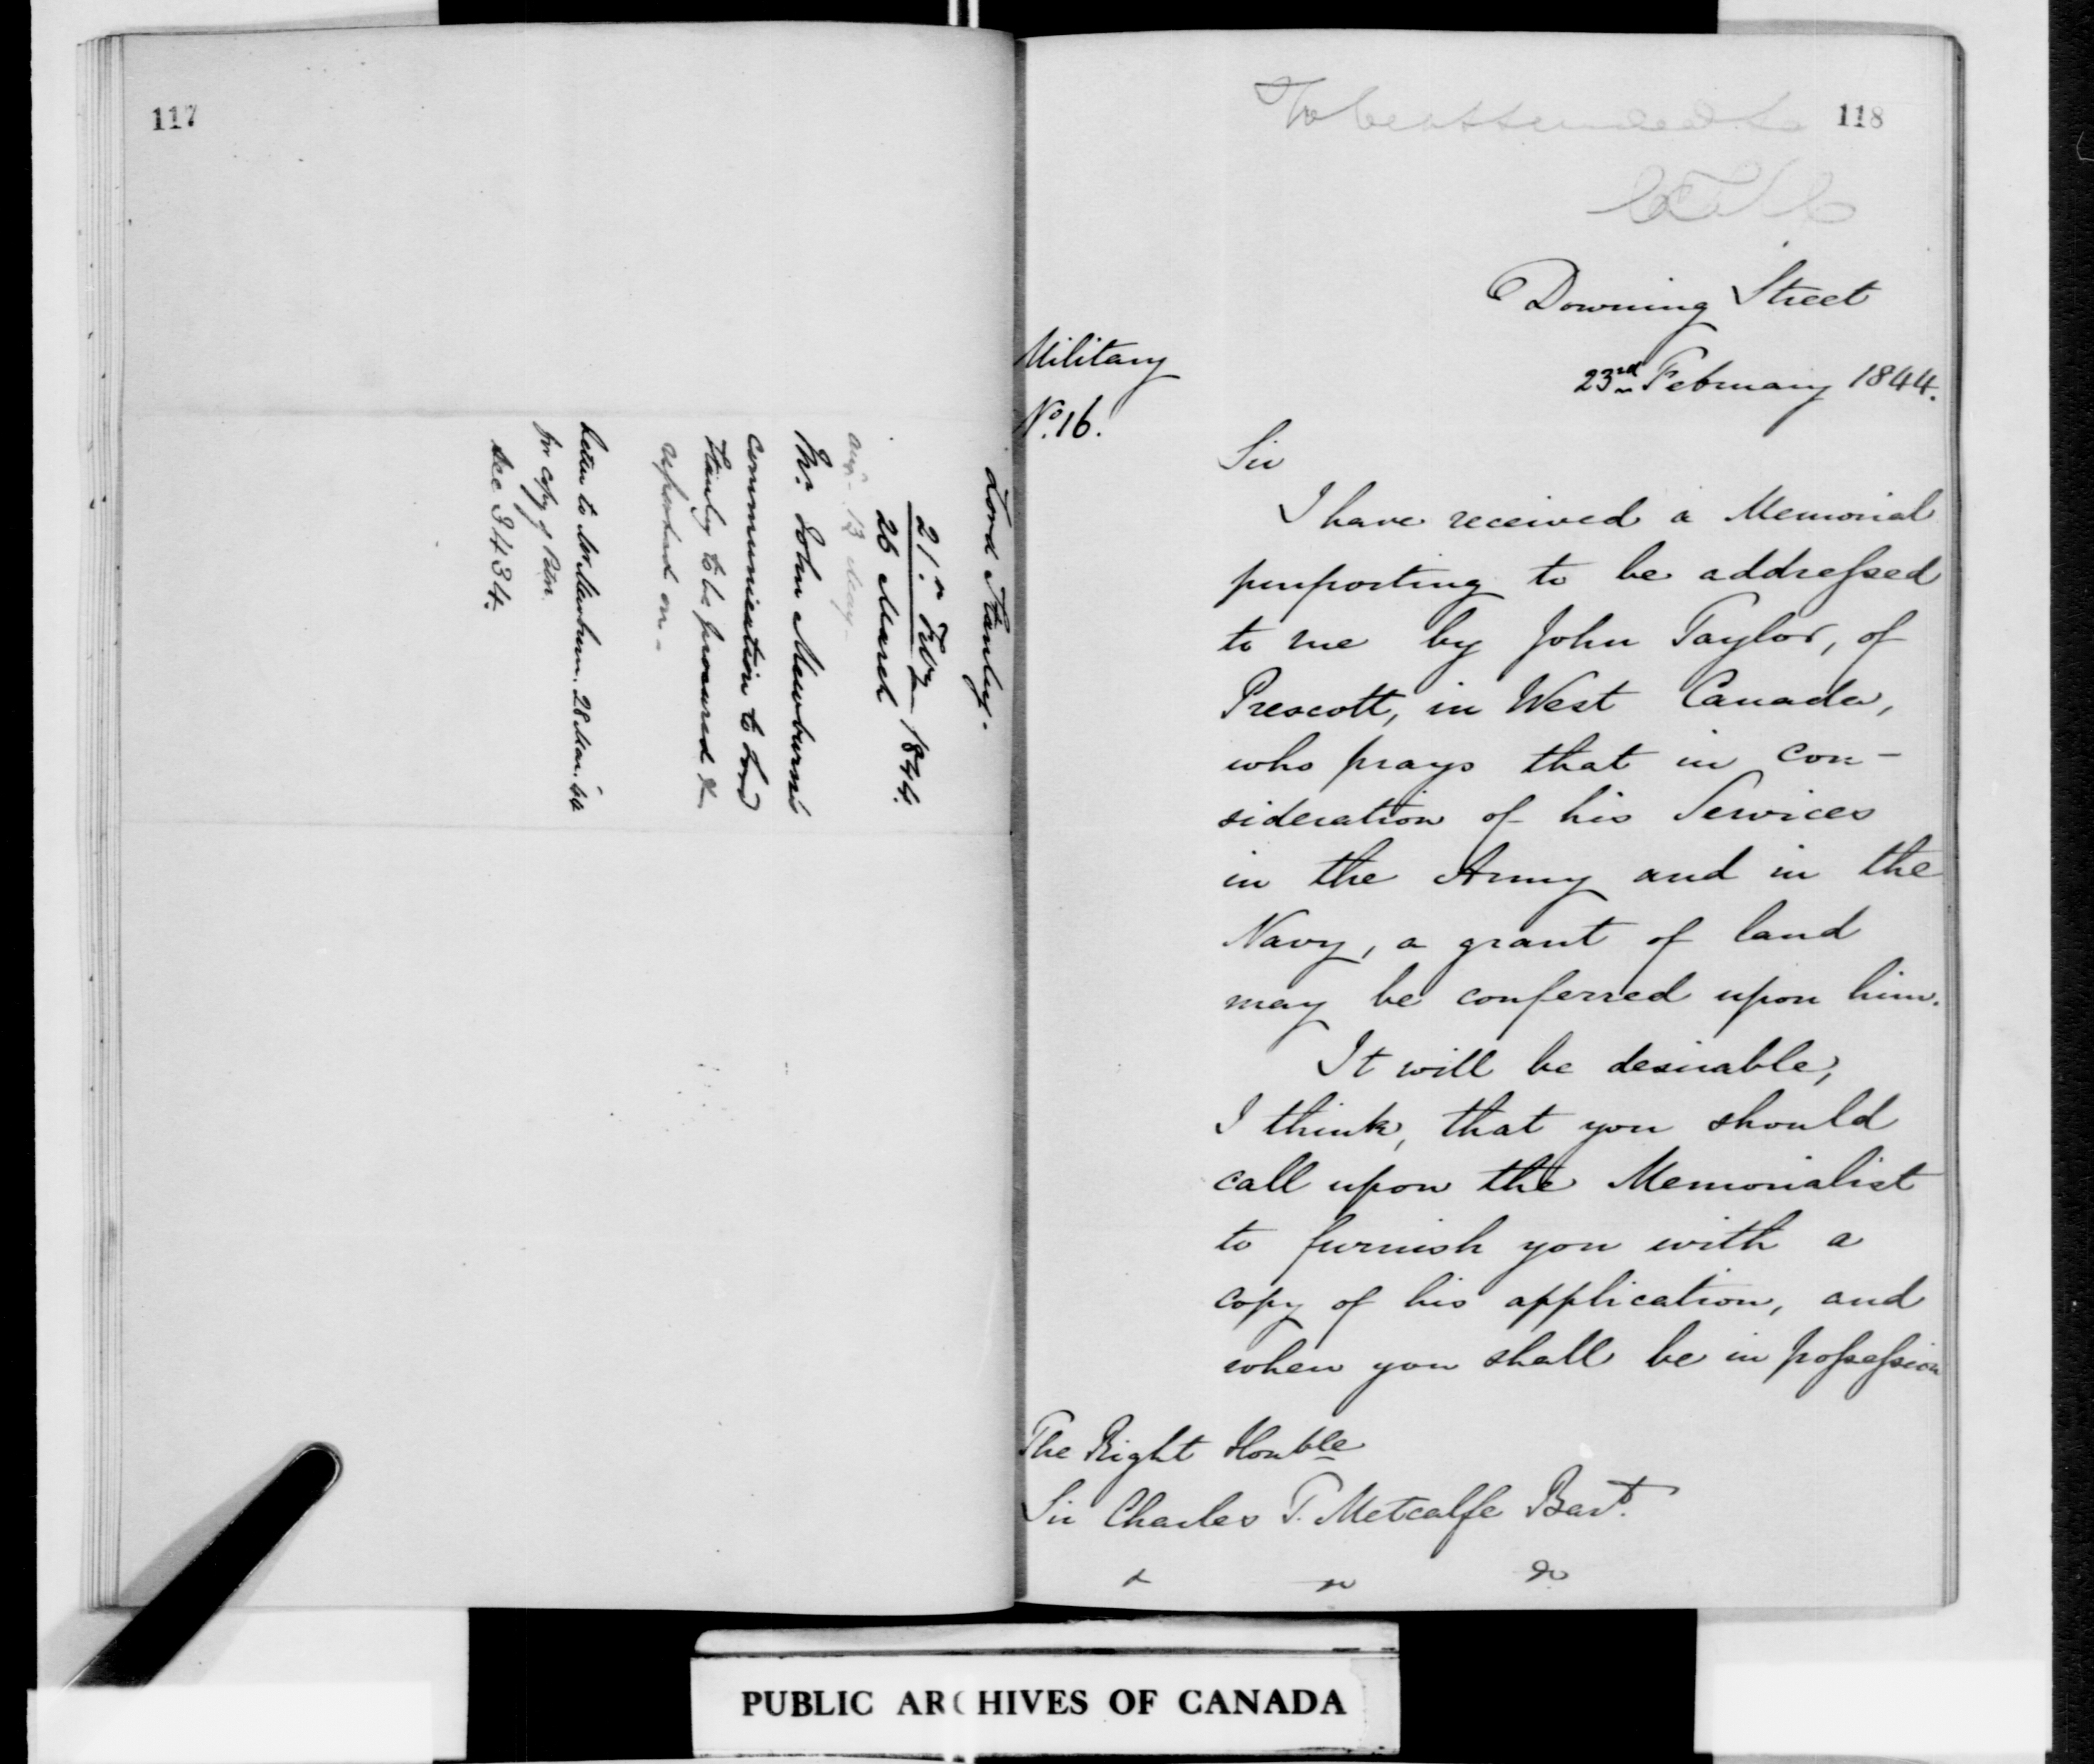 117
Lord Stanley.
21st Feby 1844.
26 March
ansd. 13 May
Mr. John Mewburn's
communication to Lord
Stanley to be procured &
reported on -
Letter to Mr Mewburn. 28 Mar: 44
for copy of
See 3434.
118
To be attended to
CTM
Downing Street
23rd February 1844.
Military
No. 16.
Sir
I have received a Memorial
purporting to be addressed
to me by John Taylor, of
Prescott, in West Canada,
who prays that in con-
sideration of his Services
in the Army and in the
Navy, a grant of land
may be conferred upon him.
It will be desirable,
I think, that you should
call upon the Memorialist
to furnish you with a
copy of his application, and
when you shall be in possession
The Right Honble
Sir Charles T. Metcalfe Bart.
PUBLIC ARCHIVES OF CANADA